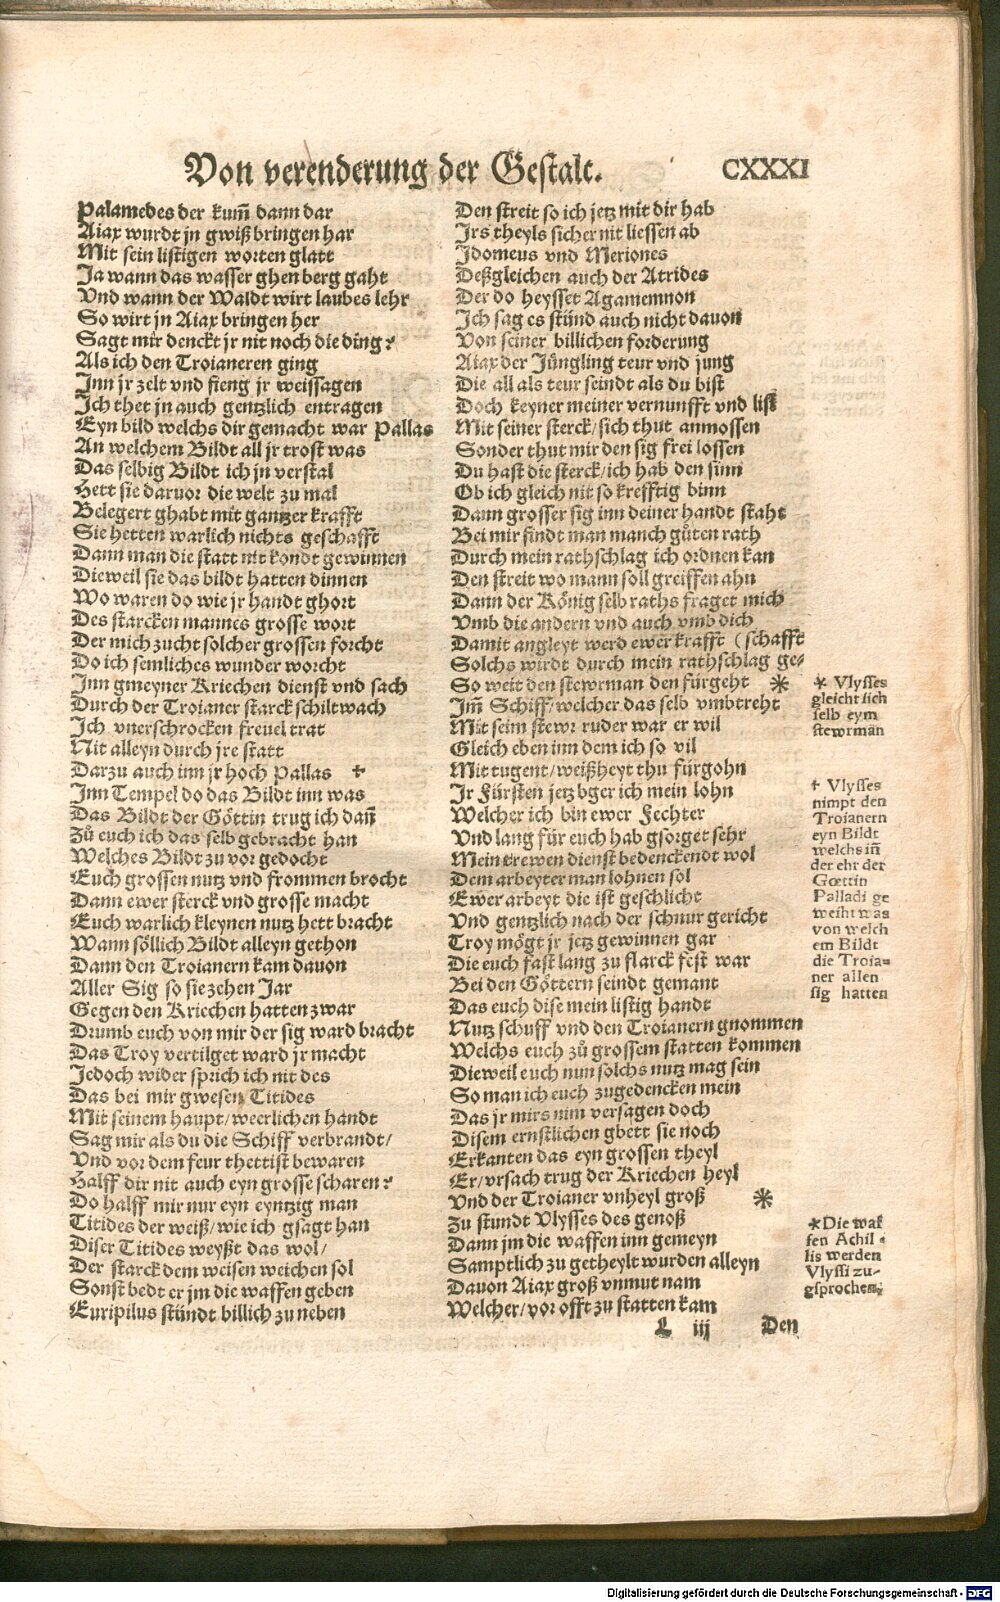 Von verenderung der Gestalt.
CXXXI
Palamedes der kum̃ dann dar
Aiax wurdt jn gwiß bringen har
Mit sein listigen worten glatt
Ja wann das wasser ghen berg gaht
Vnd wann der Waldt wirt laubes lehr
So wirt jn Aiax bringen her
Sagt mir denckt jr nit noch die ding?
Als ich den Troianeren ging
Inn jr zelt vnd fieng jr weissagen
Ich thet jn auch gentzlich entragen
Eyn bild welchs dir gemacht war Pallas
An welchem Bildt all jr trost was
Das selbig Bildt ich jn verstal
Hett sie daruor die welt zu mal
Belegert ghabt mit gantzer krafft
Sie hetten warlich nichts geschafft
Dann man die statt nit kondt gewinnen
Dieweil sie das bildt hatten dinnen
Wo waren do wie jr handt ghort
Des starcken mannes grosse wort
Der mich zucht solcher grossen forcht
Do ich semliches wunder worcht
Inn gmeyner Kriechen dienst vnd sach
Durch der Troianer starck schiltwach
Ich vnerschrocken freuel trat
Nit alleyn durch jre statt
Darzu auch inn jr hoch Pallas ✝
Inn Tempel do das Bildt inn was
Das Bildt der Göttin trug ich dañ
Zů euch ich das selb gebracht han
Welches Bildt zu vor gedocht
Euch grossen nutz vnd frommen brocht
Dann ewer sterck vnd grosse macht
Euch warlich kleynen nutz hett bracht
Wann söllich Bildt alleyn gethon
Dann den Troianern kam dauon
Aller Sig so sie zehen Jar
Gegen den Kriechen hatten zwar
Drumb euch von mir der sig ward bracht
Das Troy vertilget ward jr macht
Jedoch wider sprich ich nit des
Das bei mir gwesen Titides
Mit seinem haupt/weerlichen handt
Sag mir als du die Schiff verbrandt/
Vnd vor dem feur thettist bewaren
Halff dir nit auch eyn grosse scharen?
Do halff mir nur eyn eyntzig man
Titides der weiß/wie ich gsagt han
Diser Titides weyßt das wol/
Der starck dem weisen weichen sol
Sonst bedt er jm die waffen geben
Euripilus stündt billich zu neben
Den streit so ich jetz mit dir hab
Irs theyls sicher nit liessen ab
Idomeus vnd Meriones
Deßgleichen auch der Atrides
Der do heysset Agamemnon
Ich sag es stünd auch nicht dauon
Von seiner billichen forderung
Aiax der Jüngling teur vnd jung
Die all als teur seindt als du bist
Doch keyner meiner vernunfft vnd list
Mit seiner sterck/sich thut anmossen
Sonder thut mir den sig frei lossen
Du hast die sterck/ich hab den sinn
Ob ich gleich nit so krefftig binn
Dann grosser sig inn deiner handt staht
Bei mir findt man manch gůten rath
Durch mein rathschlag ich ordnen kan
Den streit wo mann soll greiffen ahn
Dann der König selb raths fraget mich
Vmb die andern vnd auch vmb dich
Damit angleyt werd ewer krafft (schafft
Solchs wirdt durch mein rathschlag ge-
So weit den stewrman den fürgeht *
Im̃ Schiff/welcher das selb vmbtreht
Mit seim stewr ruder war er wil
Gleich eben inn dem ich so vil
Mit tugent/weißheyt thu fürgohn
Ir Fürsten jetz bger ich mein lohn
Welcher ich bin ewer Fechter
Vnd lang für euch hab gsorget sehr
Mein trewen dienst bedenckendt wol
Dem arbeyter man lohnen sol
Ewer arbeyt die ist geschlicht
Vnd gentzlich nach der schnur gericht
Troy mögt jr jetz gewinnen gar
Die euch fast lang zu starck fest war
Bei den Göttern seindt gemant
Das euch dise mein listig handt
Nutz schuff vnd den Troianern gnommen
Welchs euch zů grossem statten kommen
Dieweil euch nun solchs nutz mag sein
So man ich euch zugedencken mein
Das jr mirs nim versagen doch
Disem ernstlichen gbett sie noch
Erkanten das eyn grossen theyl
Er/vrsach trug der Kriechen heyl
Vnd der Troianer vnheyl groß *
Zu stundt Vlysses des genoß
Dann jm die waffen inn gemeyn
Samptlich zu getheylt wurden alleyn
Dauon Aiax groß vnmut nam
Welcher/vor offt zu statten kam
* Vlysses
gleicht sich
selb eym
stewrman
✝ Vlysses
nimpt den
Troianern
eyn Bildt
welchs iñ
der ehr der
Gœttin
Palladi ge
weiht was
von welch
em Bildt
die Troia-
ner allen
sig hatten
*Die waf
fen Achil-
lis werden
Vlyssi zu-
gsprochen.
L iij
Den
Digitalisierung gefördert durch die Deutsche Forschungsgemeinschaft - DFG